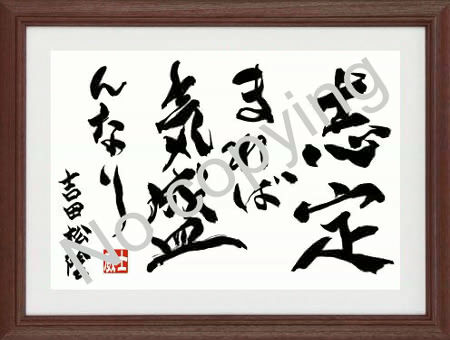 志定
まれば
気盛
んなり。
吉田松陰
No copying